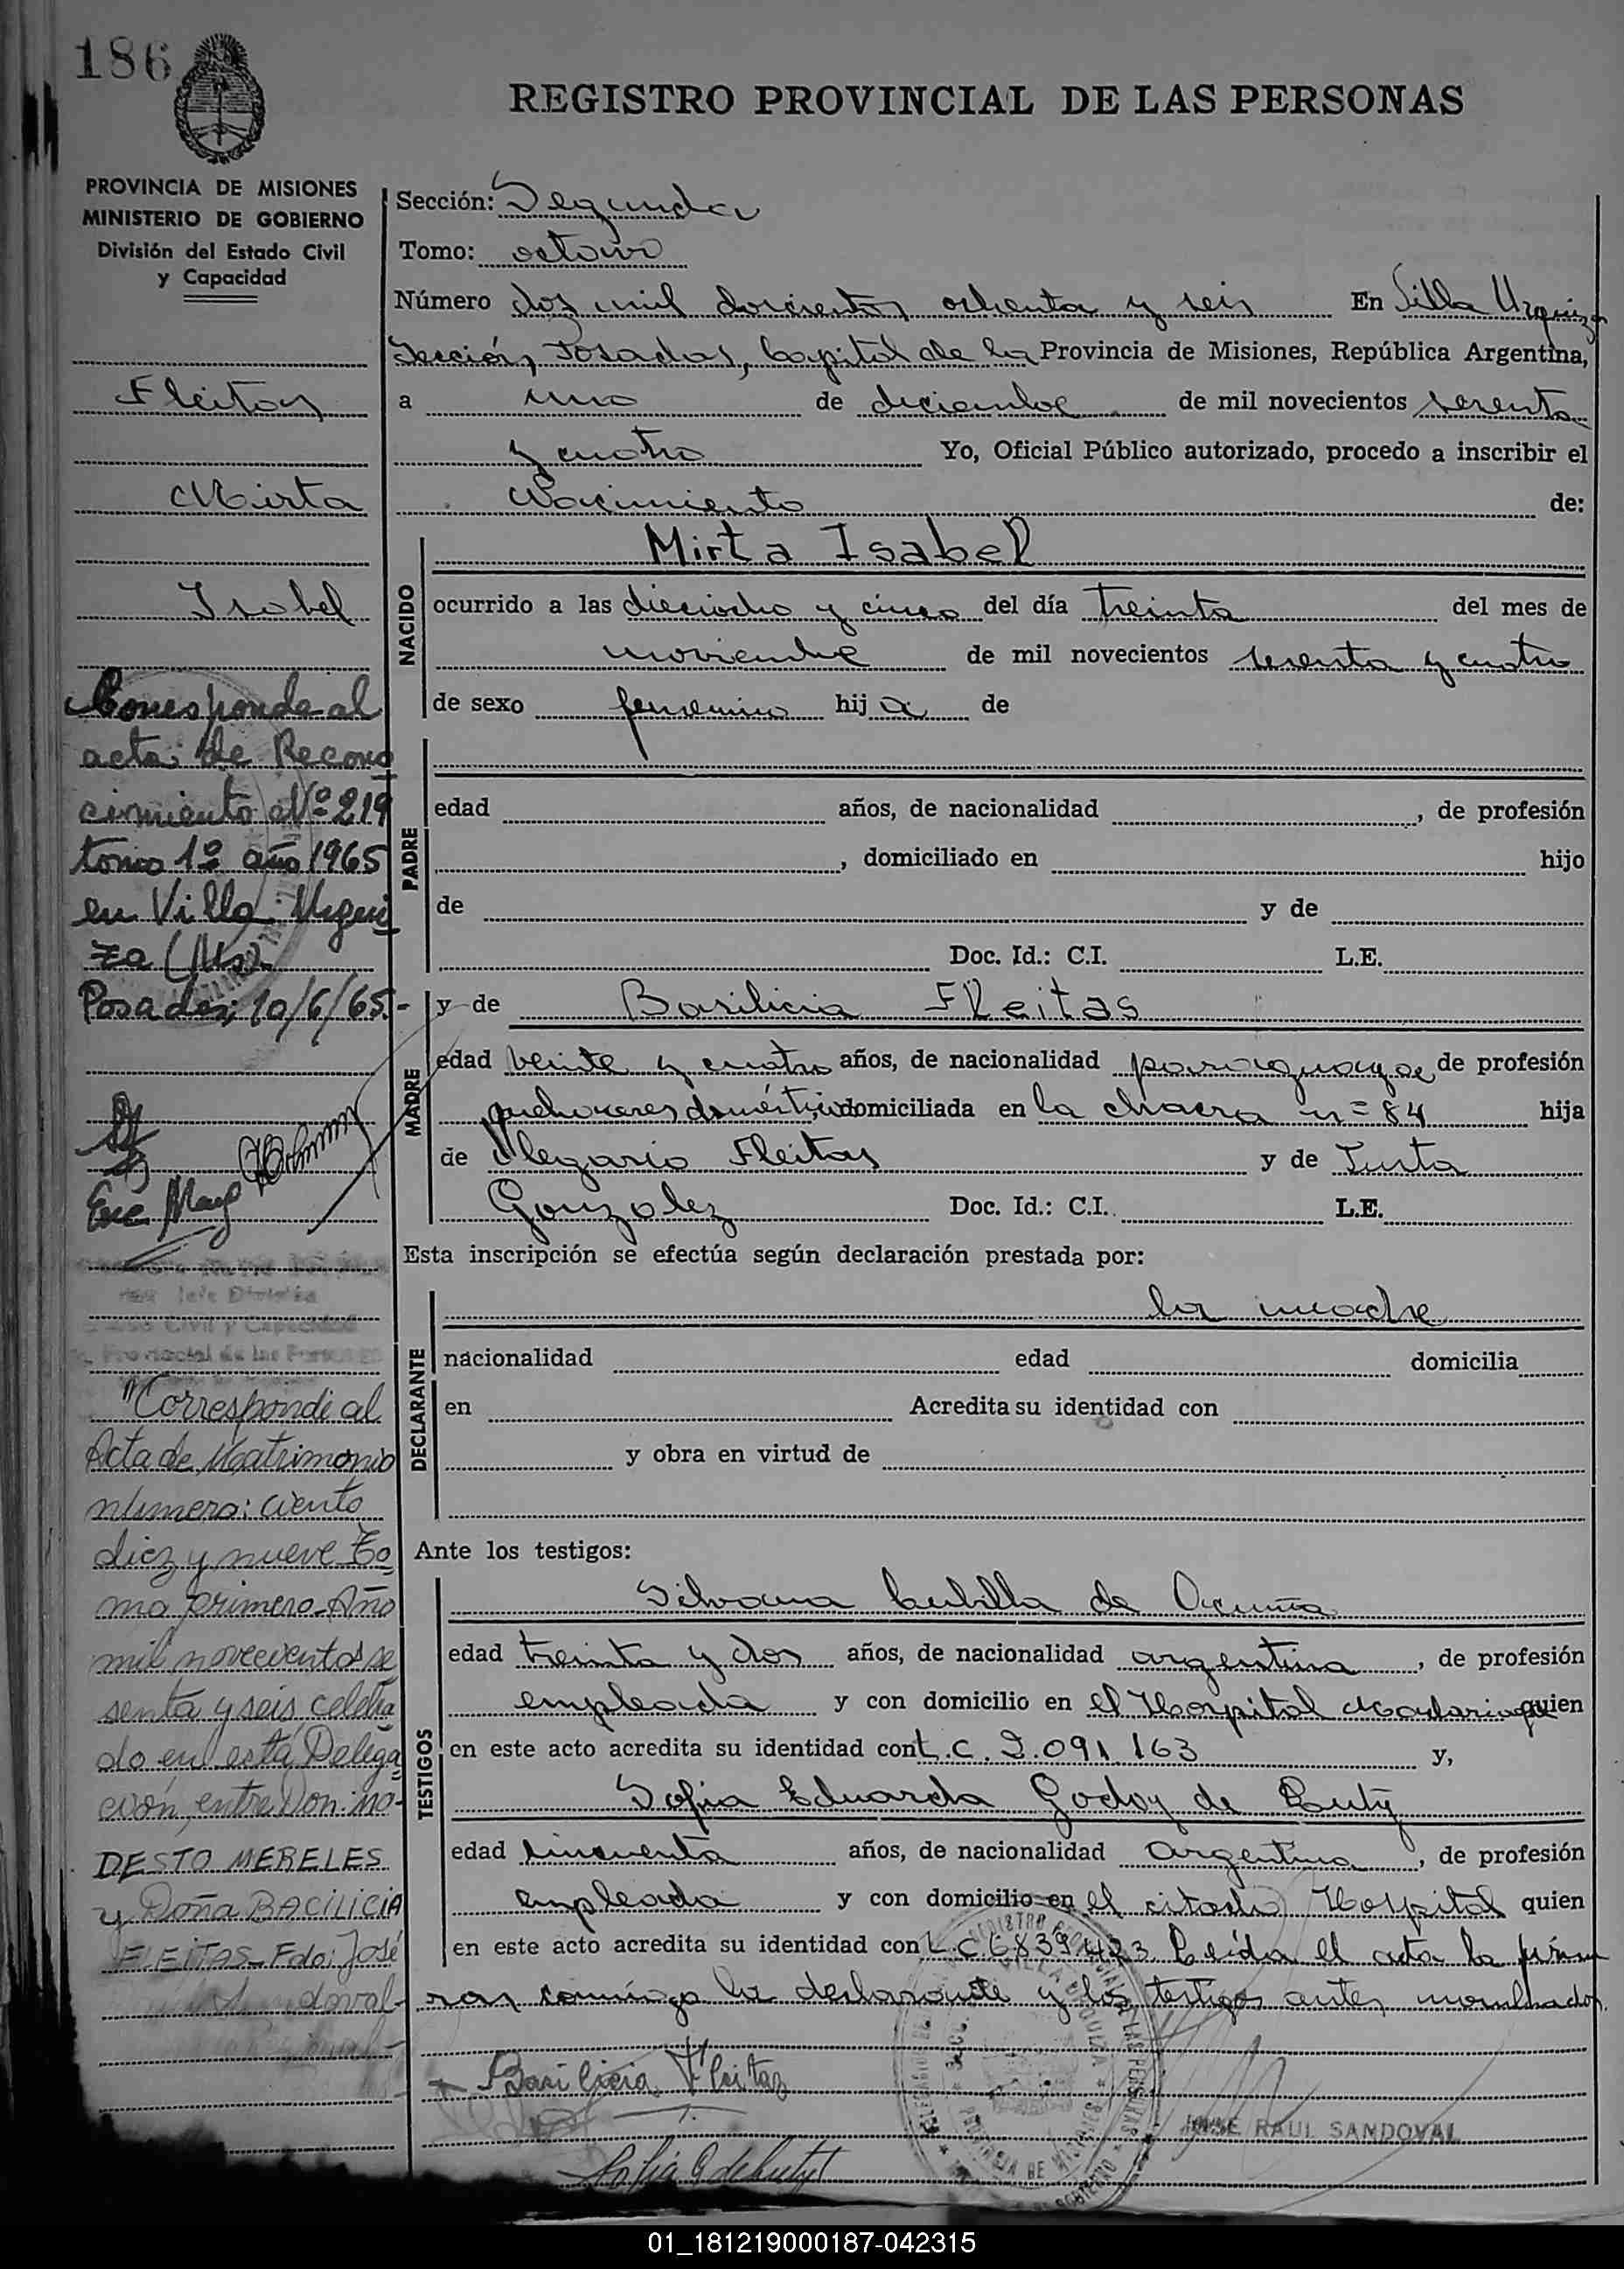 186
REGISTRO PROVINCIAL DE LAS PERSONAS
PROVINCIA DE MISIONES
MINISTERIO DE GOBIERNO
División del Estado Civil
y Capacidad
Fleitas
Mirta
Isabel
Corresponde al
acta de Recono
cimiento Nº 219
tomo 1º año 1965
en Villa Urqui
za (Ms).
Posadas, 10/6/65.-
"Corresponde al
Acta de Matrimonio
número: ciento
diez y nueve To
mo primero-Año
mil novecientos se
senta y seis, celebra
do en esta Delega
ción, entre Don: MO-
DESTO MERELES
y Doña BACILICIA
FLEITAS-Fdo: José
Sandoval-
Sección: Segunda
Tomo: octavo
Número dos mil doscientos ochenta y seis En Villa Urquiza
Sección, Posadas, Capital de la Provincia de Misiones, República Argentina,
a uno de diciembre de mil novecientos sesenta
y cuatro Yo, Oficial Público autorizado, procedo a inscribir el
Nacimiento de:
NACIDO
Mirta Isabel
ocurrido a las dieciocho y cinco del día treinta del mes de
noviembre de mil novecientos sesenta y cuatro
de sexo femenino hij a de
PADRE
edad años, de nacionalidad , de profesión
, domiciliado en hijo
de y de
Doc. Id.: C.I. L.E.
MADRE
y de Basilicia Fleitas
edad veinte y cuatro años, de nacionalidad paraguaya de profesión
quehaceres domésticos domiciliada en la chacra n= 84 hija
de Olegario Fleitas y de Justa
Gonzalez Doc. Id.: C.I. L.E.
Esta inscripción se efectúa según declaración prestada por:
DECLARANTE
la madre
nacionalidad edad domicilia
en Acredita su identidad con
y obra en virtud de
Ante los testigos:
TESTIGOS
Silvana Cubilla de Acuña
edad treinta y dos años, de nacionalidad argentina , de profesión
empleada y con domicilio en el Hospital Madariaga quien
en este acto acredita su identidad con L.C. 2.091.163 y,
Sofia Eduarda Godoy de Buty
edad cincuenta años, de nacionalidad Argentina , de profesión
empleada y con domicilio en el citado Hospital quien
en este acto acredita su identidad con L.C 6839423. Leída el acta la firma
ron conmigo la declarante y los testigos antes nombrados.
Basilicia Fleitas
JOSE RAUL SANDOVAL
01_181219000187-042315